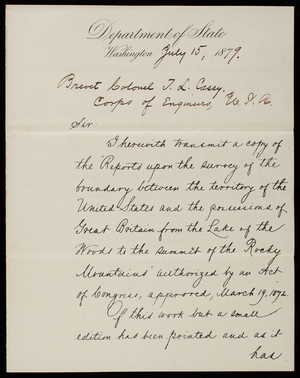 Department of State
Washington July 15, 1879.
Brevet Colonel T. L. Casey,
Corps of Engineers, U. S. A.
Sir
I herewith transmit a copy of
the 'Reports upon the survey of the
boundary between the territory of the
United States and the possessions of
Great Britain from the Lake of the
Woods to the summit of the Rocky
Mountains' authorized by an Act
of Congress, approved, March 19, 1872.
Of this work but a small
edition has been printed and as it
has